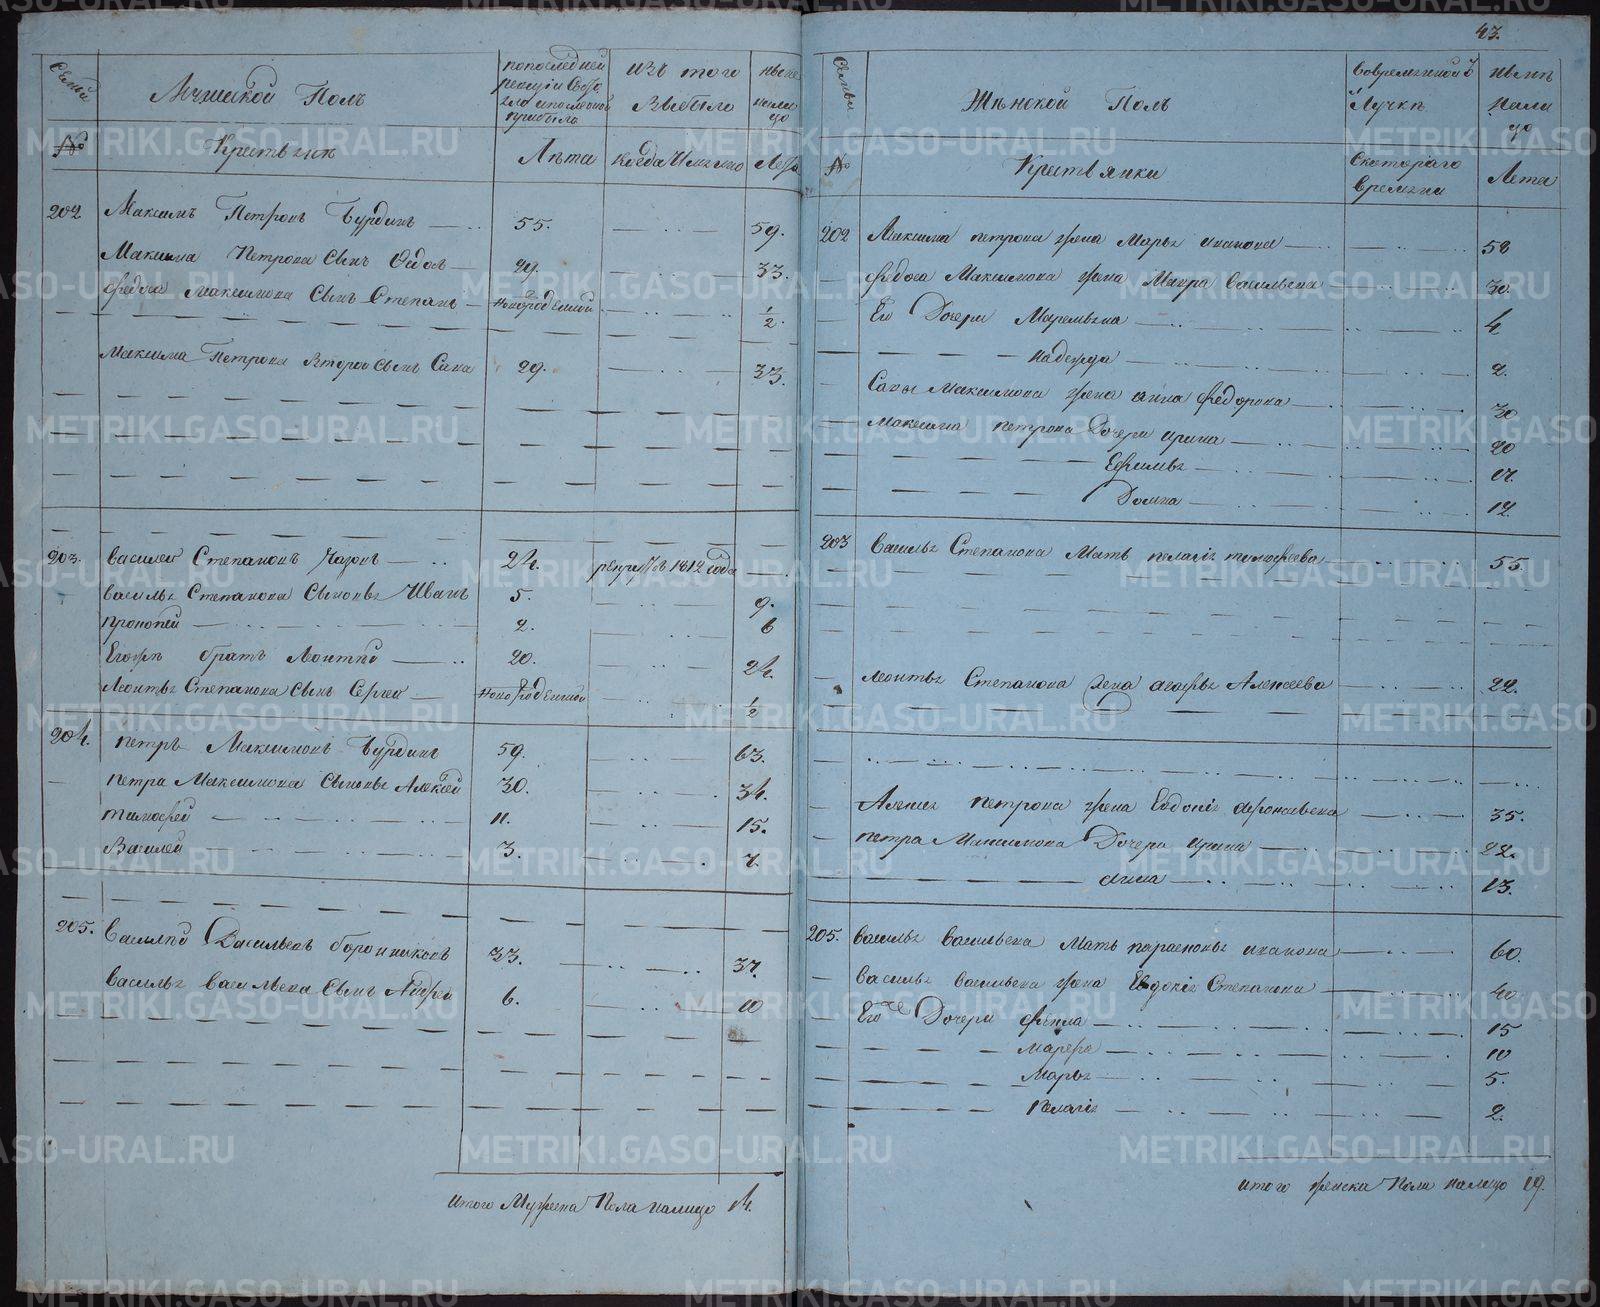 43.
Семьи
Мужеской Полъ
попоследней
ревизии
прибыло
изъ того
Выбыло
ныне
нали
цо
№
Крестьяне
Лѣта
когда Именно
Лета
202
Максимъ Петровъ Бурдинъ
55.
59.
Максима Петрова Сынъ Федос
29.
33.
Федоса Максимова Сынъ Степанъ
новорожденной
1/2
Максима Петрова Второй Сынъ Сава
29.
33.
203.
Василей Степановъ
24.
рекрутъ 1812 года
Василья Степанова Сыновья Иванъ
5.
9.
Прокопей
2.
6
Егожъ братъ Леонтей
20.
24.
Леонтья Степанова Сынъ Сергей
новорожденной
1/2
204.
Петръ Максимовъ Бурдинъ
59.
63.
Петра Максимова Сыновья Алексей
30.
34.
Тимофей
11.
15.
Василей
3.
7.
205.
Василей Васильевъ боронниковъ
33.
37.
Василья Васильева Сынъ Андрей
6.
10
итого Мужеска Пола налицо 14.
Семьи
Женской Полъ
Вовременной
Лучке
ныне
нали
цо
№
Крестьянки
Скотораго
времени
Лета
202
Максима петрова жена Марья иванова
58
Федоса Максимова жена Мавра Васильева
30.
Его Дочери Маремьяна
4
надежда
2.
Савы Максимова жена анна Федорова
30
Максима петрова Дочери ирина
20
Ефимья
17.
Домна
12.
203
Василья Степанова Мать пелагея тимофеева
55.
Леонтья Степанова жена агафья Алексеева
22.
Алексея петрова жена Евдокия афонасьева
35.
петра Максимова Дочери ирина
22.
анна
13.
205.
Василья Васильева Мать парасковья иванова
60.
Василья Васильева жена Евдокия Степанова
40
Его же Дочери фекла
15
Марфа
10
Марья
5.
Пелагия
2.
итого женска Пола налицо 19.
METRIKI.GASO-URAL.RU